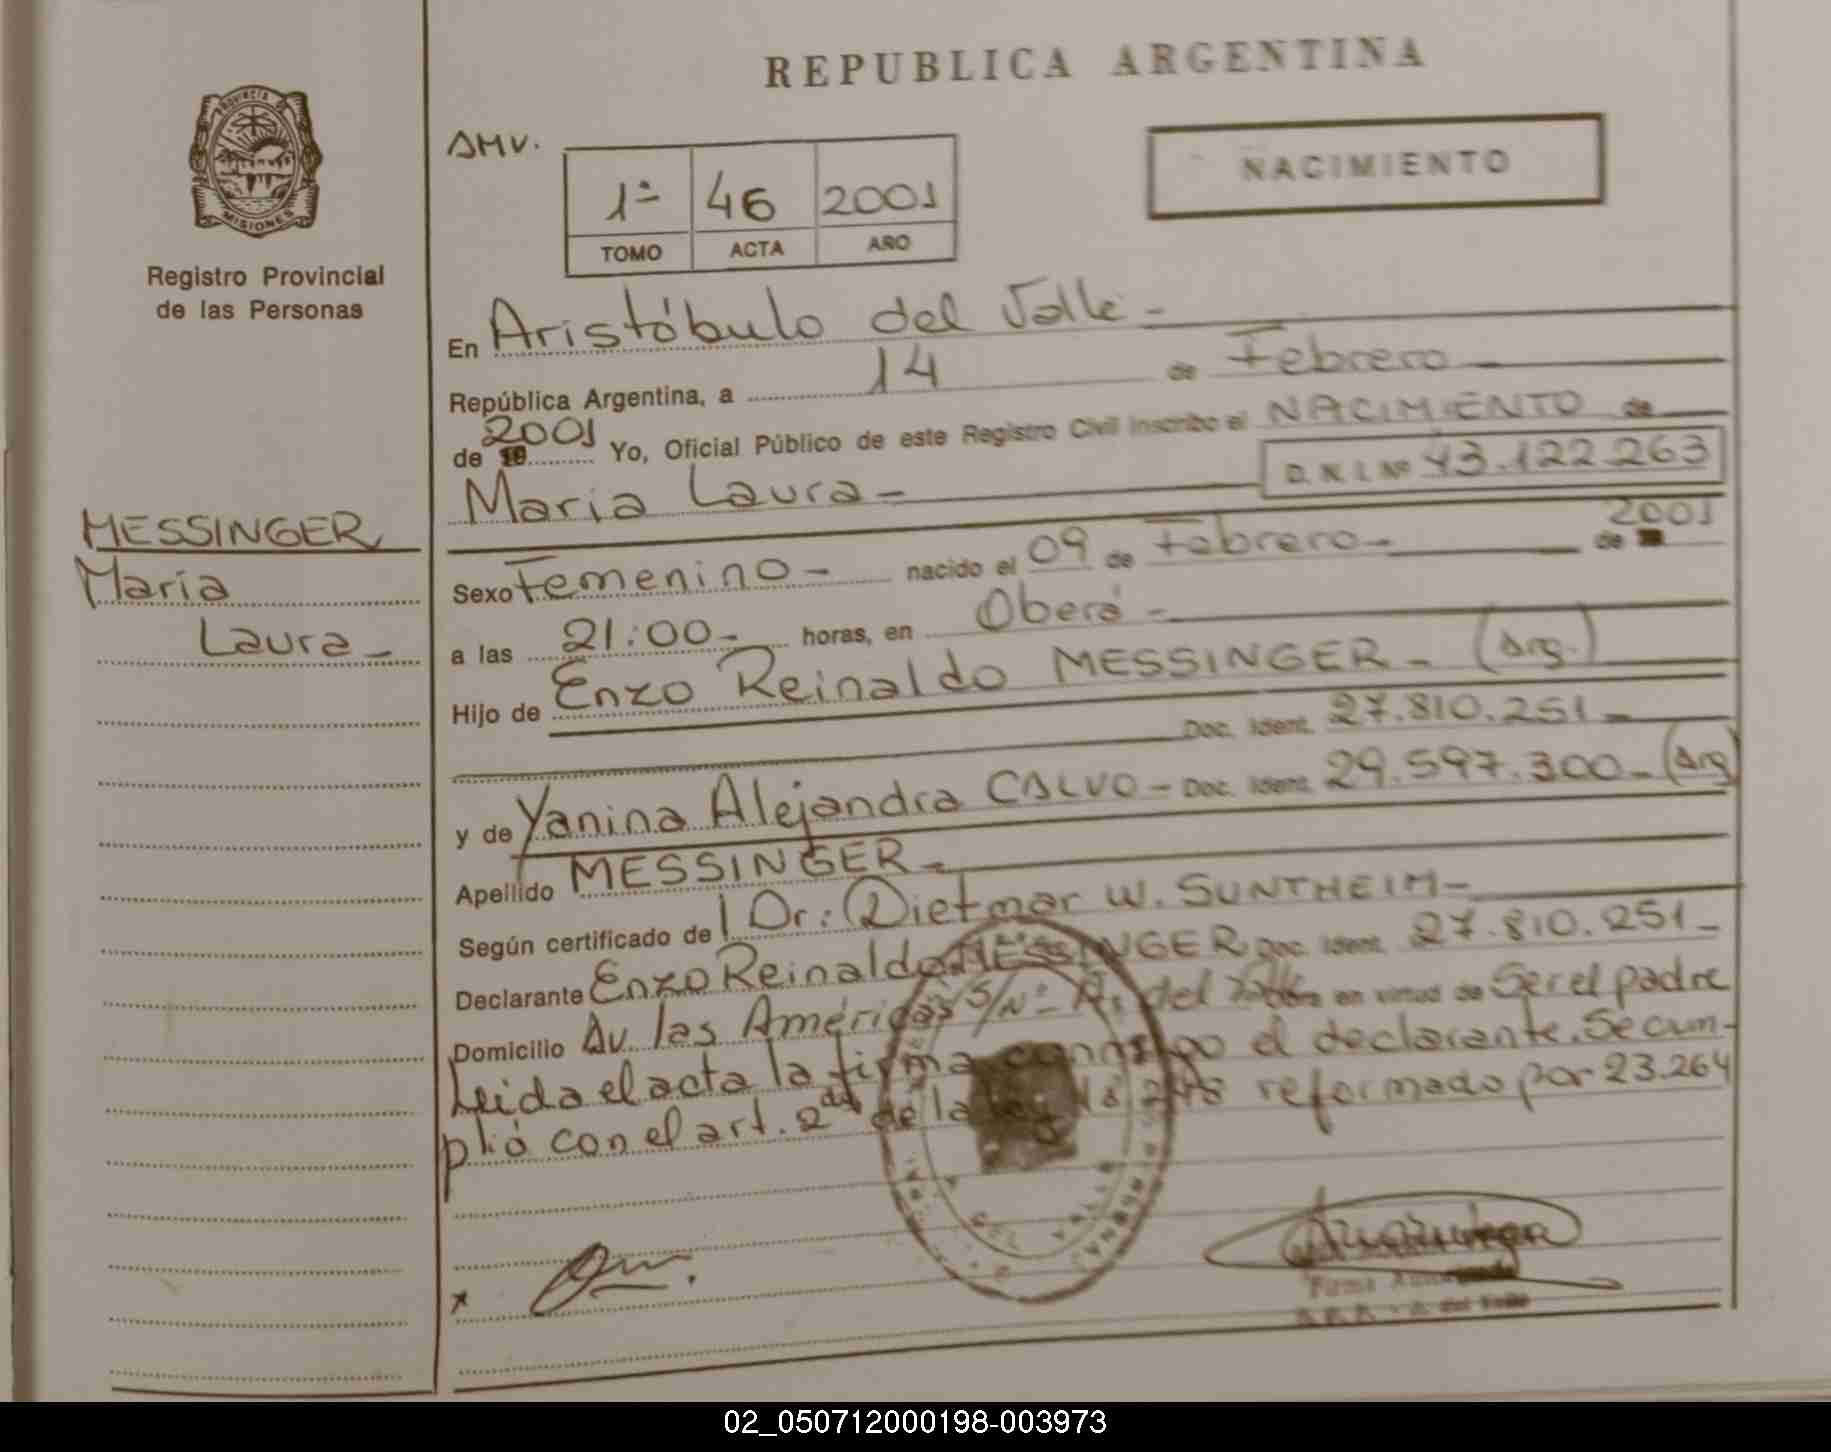 REPUBLICA ARGENTINA
PROVINCIA DE
MISIONES
Registro Provincial
de las Personas
AMV.
1ª 46 2001
TOMO ACTA AÑO
NACIMIENTO
En Aristóbulo del Valle -
República Argentina, a 14 de Febrero -
de 19 2001 Yo, Oficial Público de este Registro Civil inscribo el NACIMIENTO de
D.N.I. Nº 43.122.263
Maria Laura -
MESSINGER
Maria
Laura -
Sexo Femenino - nacido el 09 de Febrero - de 2001
a las 21:00 - horas, en Oberá -
Hijo de Enzo Reinaldo MESSINGER - (Arg.)
Doc. Ident. 27.810.251 -
y de Yanina Alejandra CALVO - Doc. Ident. 29.597.300 - (Arg)
Apellido MESSINGER -
Según certificado de Dr: Dietmar W. SUNTHEIM -
Declarante Enzo Reinaldo MESSINGER Doc. Ident. 27.810.251 -
Domicilio Av. las Américas S/Nº - A. del Valle en virtud de Ser el padre
Leida el acta la firma conmigo el declarante. Se cum-
plió con el art. 2 de la ley 18.248 reformado por 23.264
x
Firma
del Valle
02_050712000198-003973